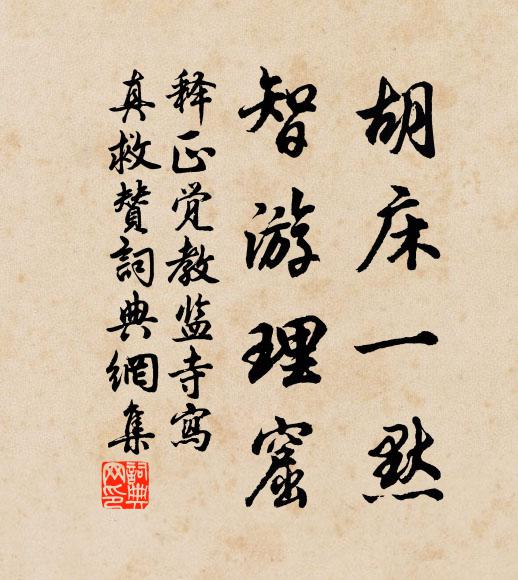 胡床一默
智游理窟
释正觉教监寺写
真救赞词典網集
词典
网印